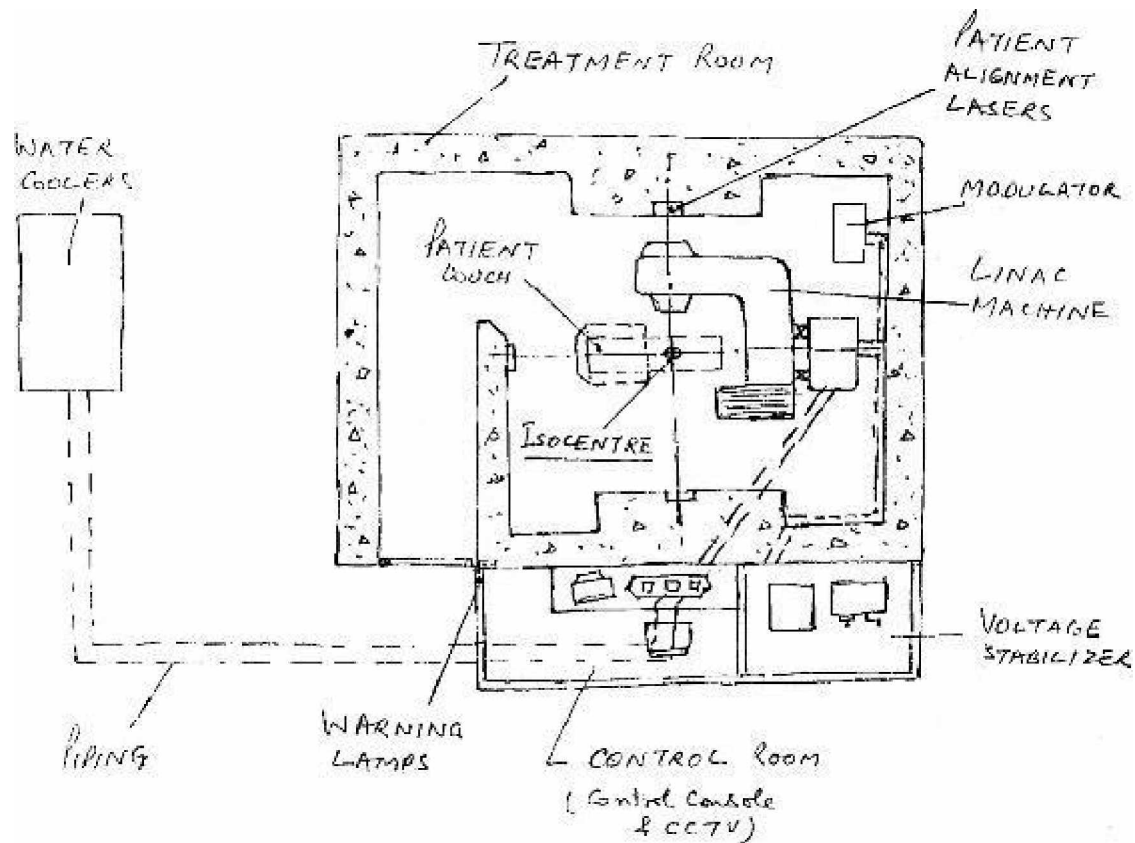 TREATMENT ROOM
PATIENT
ALIGNMENT
LASERS
WATER
COOLERS
MODULATOR
PATIENT
COUCH
LINAC
MACHINE
ISOCENTRE
VOLTAGE
STABILIZER
PIPING
WARNING
LAMPS
CONTROL ROOM
(Control Console
& CCTV)